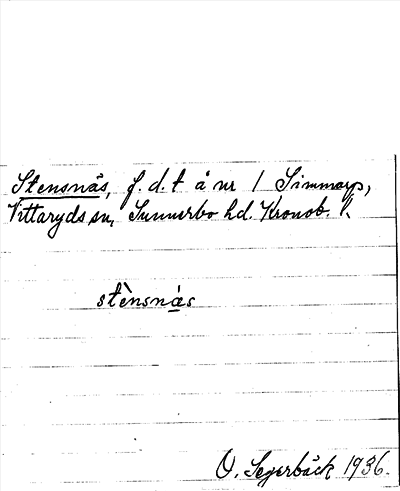 Stensnäs, f.d.t å nr 1 Simmarp,
Vittaryds sn, Sunnerbo hd. Kronob. l.
stènsnäs
O. Segerbäck 1936.